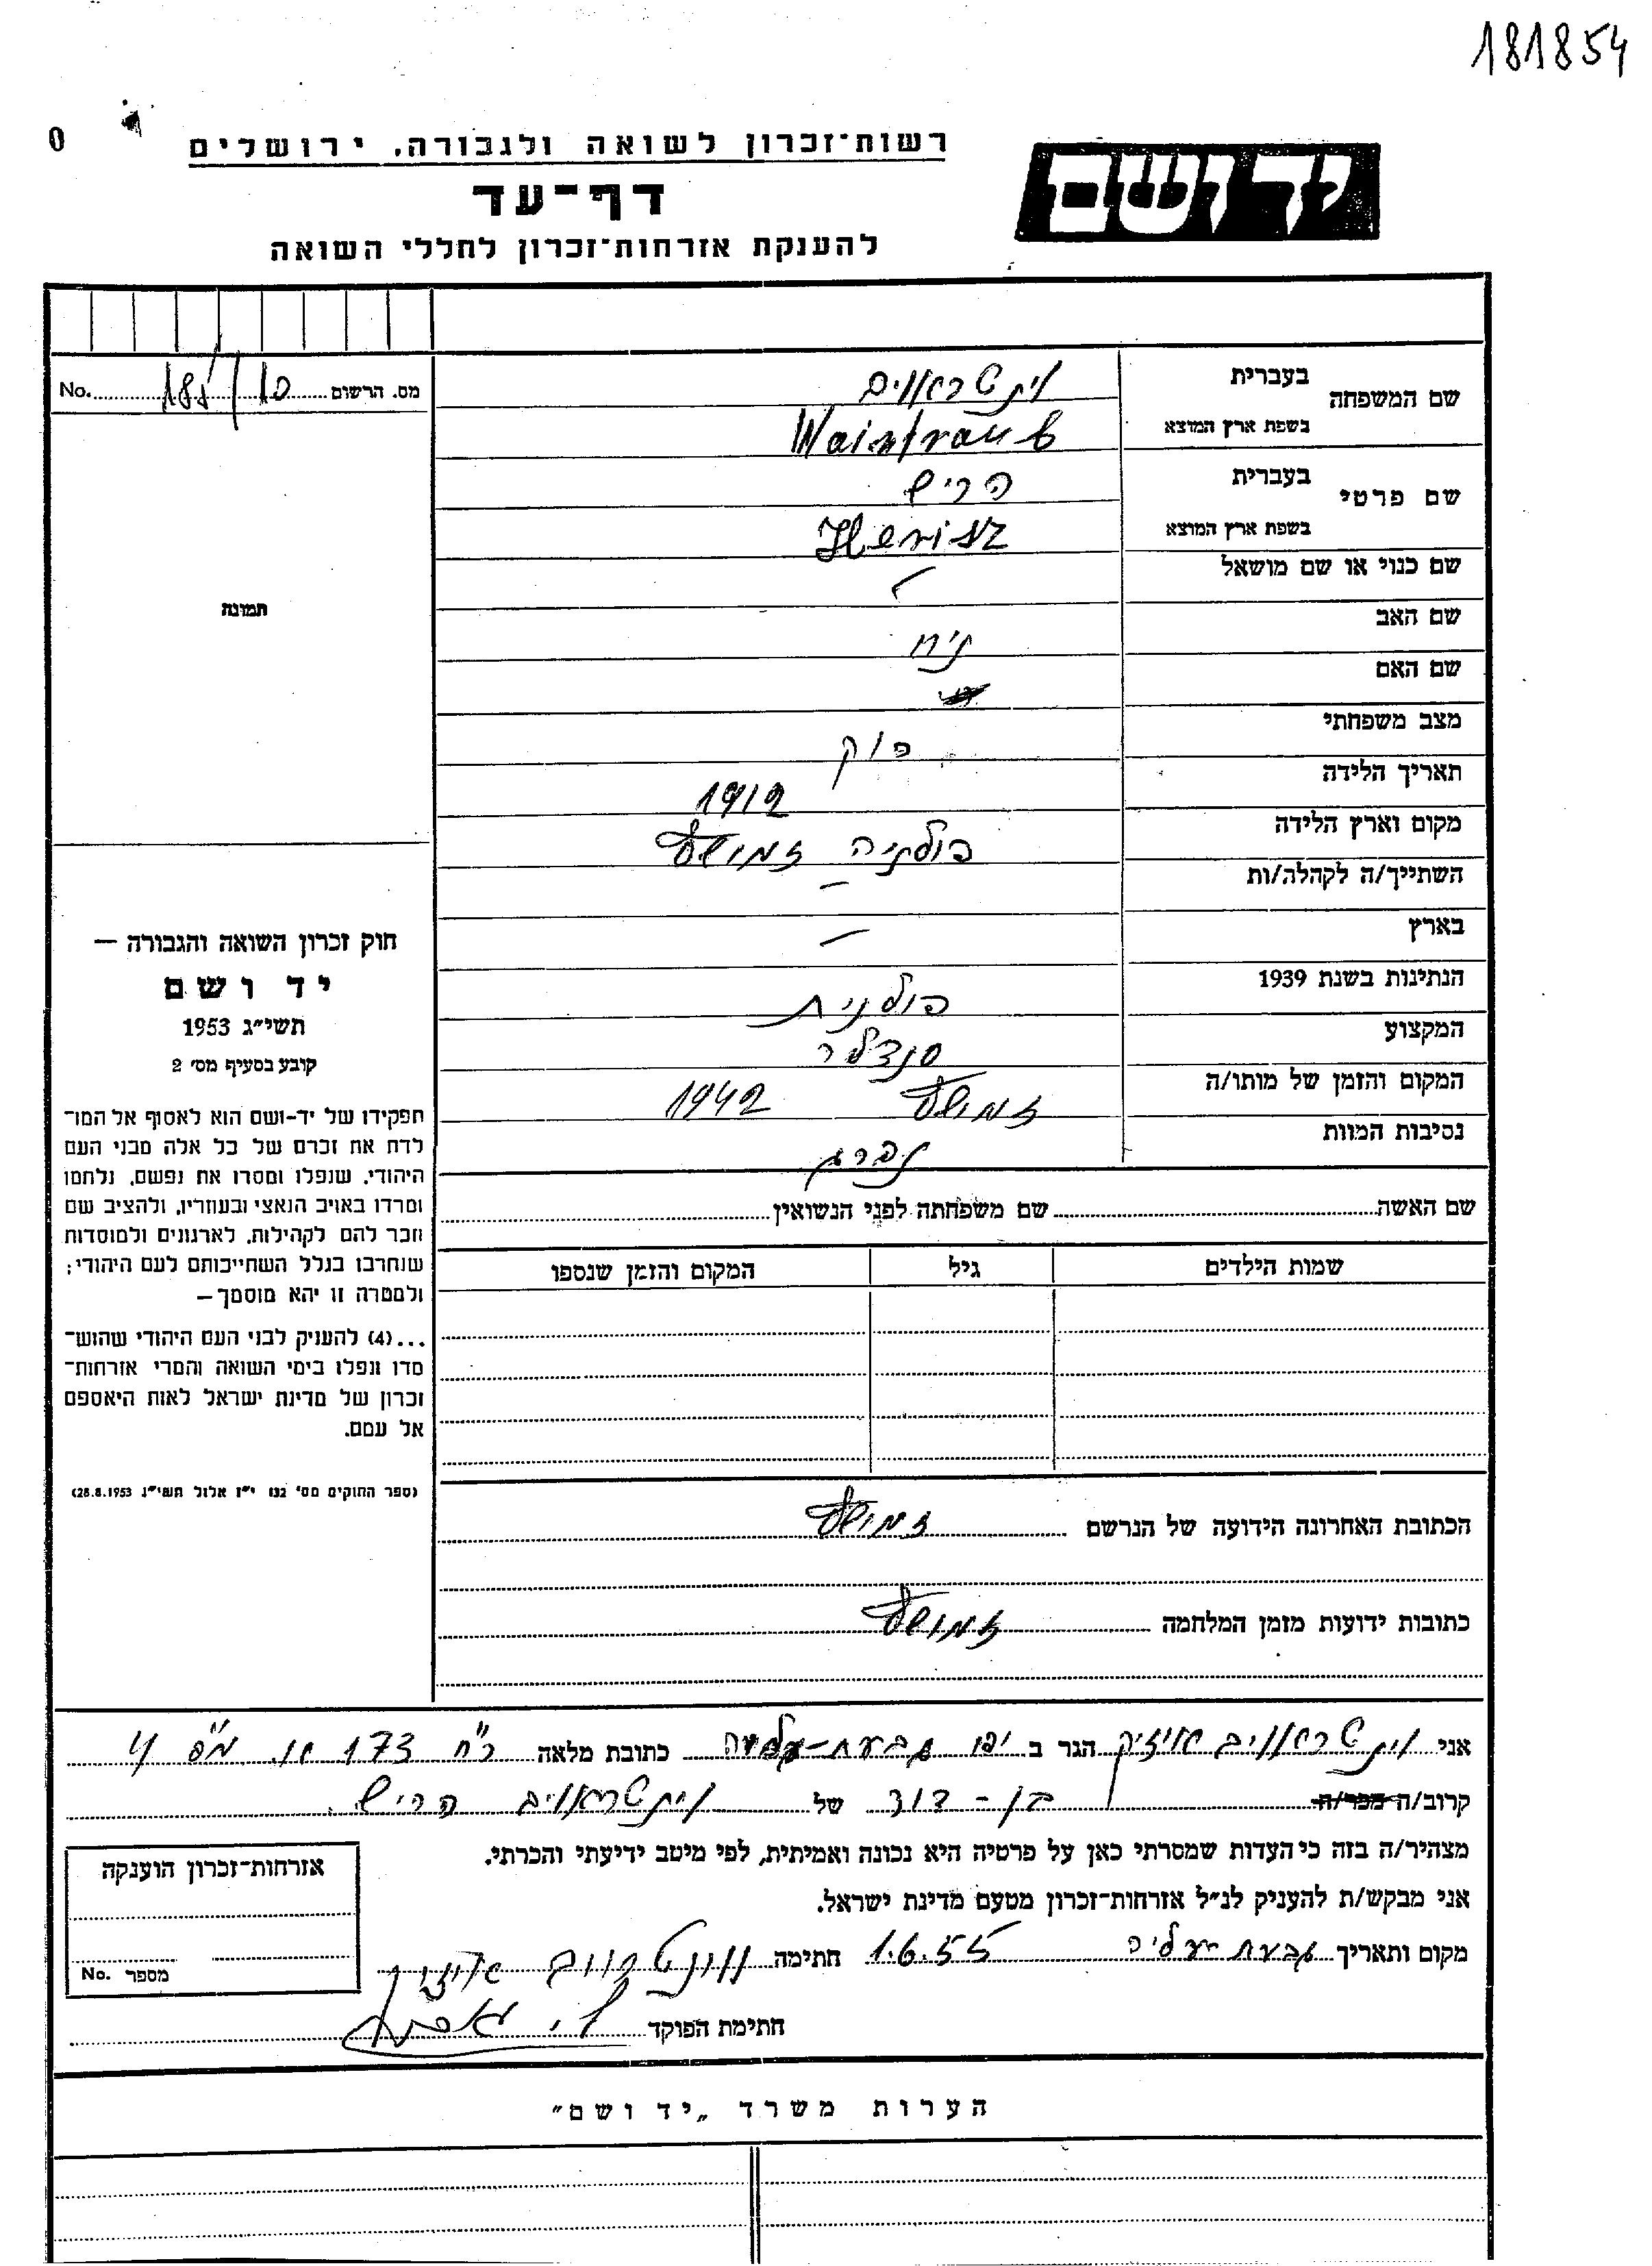 181854
0
רשות־זכרון לשואה ולגבורה, ירושלים
יד ושם
דף־עד
להענקת אזרחות־זכרון לחללי השואה
מס. הרשום 10 / No.
שם המשפחה
בעברית וינטראוייב
בשפת ארץ המוצא Waintraub
שם פרטי
בעברית הריש
בשפת ארץ המוצא Herisz
שם כנוי או שם מושאל
שם האב נח
שם האם
מצב משפחתי רוק
תאריך הלידה 1912
מקום וארץ הלידה פולניה זמושץ
השתייך/ה לקהלה/ות –
בארץ –
הנתינות בשנת 1939 פולנית
המקצוע סנדלר
המקום והזמן של מותו/ה זמושץ 1942
נסיבות המוות נהרג
תמונה
חוק זכרון השואה והגבורה —
יד ושם
תשי״ג 1953
קובע בסעיף מס׳ 2
תפקידו של יד-ושם הוא לאסוף אל המו־
לדת את זכרם של כל אלה מבני העם
היהודי, שנפלו ומסרו את נפשם, נלחמו
ומרדו באויב הנאצי ובעוזריו, ולהציב שם
וזכר להם לקהילות, לארגונים ולמוסדות
שנחרבו בגלל השתייכותם לעם היהודי;
ולמטרה זו יהא מוסמך—
...(4) להעניק לבני העם היהודי שהוש־
מדו ונפלו בימי השואה והמרי אזרחות־
זכרון של מדינת ישראל לאות היאספם
אל עמם.
(ספר החוקים מס׳ 132 י״ז אלול תשי״ג 28.8.1953)
שם האשה שם משפחתה לפני הנשואין
שמות הילדים גיל המקום והזמן שנספו
הכתובת האחרונה הידועה של הנרשם זמושץ
כתובות ידועות מזמן המלחמה זמושץ
אני וינטראוייב אייזיק הגר ב יפו גבעת-עליה כתובת מלאה רח׳ 173 מס׳ 4
קרוב/ה מכר/ה בן-דוד של וינטראוייב הריש
מצהיר/ה בזה כי העדות שמסרתי כאן על פרטיה היא נכונה ואמיתית, לפי מיטב ידיעתי והכרתי.
אני מבקש/ת להעניק לנ״ל אזרחות־זכרון מטעם מדינת ישראל.
מקום ותאריך גבעת עליה 1.6.55 חתימה וונטרויב אייזיק
חתימת הפוקד
אזרחות־זכרון הוענקה
מספר No.
הערות משרד „יד ושם״